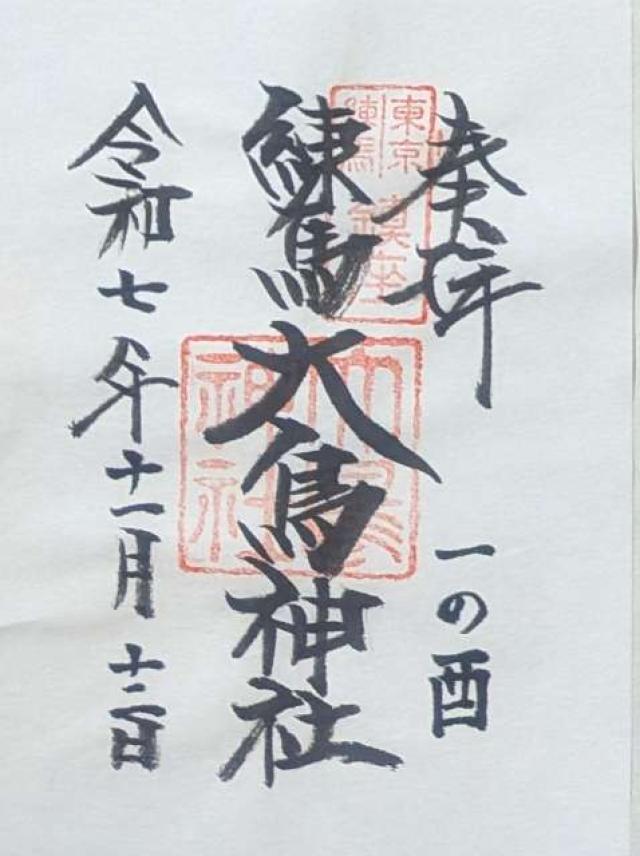 奉拝
一の酉
東京
練馬
鎮座
練馬大鳥神社
大鳥
神社
令和七年十一月十二日